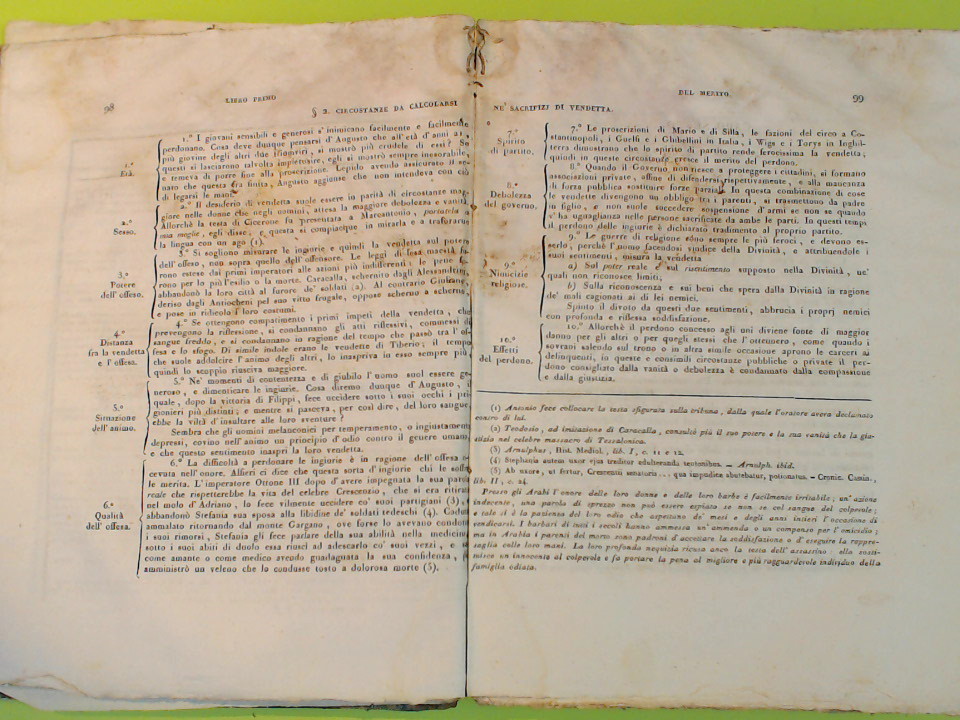 98
LIBRO PRIMO
§ 2. CIRCOSTANZE DA CALCOLARSI
1.°
Età.
1.° I giovani sensibili e generosi s'inimicano facilmente e facilmente
perdonano. Cosa deve dunque pensarsi d'Augusto che all'età d'anni 21,
più giovine degli altri due triumviri, si mostrò più crudele di essi? Se
questi si lasciarono talvolta impietosire, egli si mostrò sempre inesorabile,
e temeva di porre fine alla proscrizione. Lepido avendo assicurato il se-
nato che questa era finita, Augusto aggiunse che non intendeva con ciò
di legarsi le mani.
2.°
Sesso.
2.° Il desiderio di vendetta suole essere in parità di circostanze mag-
giore nelle donne che negli uomini, attesa la maggiore debolezza e vanità.
Allorchè la testa di Cicerone fu presentata a Marcantonio, portatela a
mia moglie, egli disse, e questa si compiacque in mirarla e a traforarne
la lingua con un ago (1).
3.°
Potere
dell'offeso.
3.° Si sogliono misurare le ingiurie e quindi la vendetta sul potere
dell'offeso, non sopra quello dell'offensore. Le leggi di lesa maestà fu-
rono estese dai primi imperatori alle azioni più indifferenti, le pene fu-
rono per lo più l'esilio o la morte. Caracalla, schernito dagli Alessandrini,
abbandonò la loro città al furore de' soldati (2). Al contrario Giuliano,
deriso dagli Antiocheni pel suo vitto frugale, oppose scherno a scherno,
e pose in ridicolo i loro costumi.
4.°
Distanza
fra la vendetta
e l'offesa.
4.° Se ottengono compatimento i primi impeti della vendetta, che
prevengono la riflessione, si condannano gli atti riflessivi, commessi di
sangue freddo, e si condannano in ragione del tempo che passò tra l'of-
fesa e lo sfogo. Di simile indole erano le vendette di Tiberio; il tempo
che suole addolcire l'animo degli altri, lo inaspriva in esso sempre più,
quindi lo scoppio riusciva maggiore.
5.°
Situazione
dell'animo.
5.° Ne' momenti di contentezza e di giubilo l'uomo suol essere ge-
neroso, e dimenticare le ingiurie. Cosa diremo dunque d'Augusto, il
quale, dopo la vittoria di Filippi, fece uccidere sotto i suoi occhi i pri-
gionieri più distinti; e mentre si pasceva, per così dire, del loro sangue,
ebbe la viltà d'insultare alle loro sventure?
Sembra che gli uomini melanconici per temperamento, o ingiustamente
depressi, covino nell'animo un principio d'odio contro il genere umano,
e che questo sentimento inaspri la loro vendetta.
6.°
Qualità
dell'offesa.
6.° La difficoltà a perdonare le ingiurie è in ragione dell'offesa ri-
cevuta nell'onore. Alfieri ci dice che questa sorta d'ingiurie chi le soffre
le merita. L'imperatore Ottone III dopo d'avere impegnata la sua parola
reale che rispetterebbe la vita del celebre Crescenzio, che si era ritirato
nel molo d'Adriano, lo fece vilmente uccidere co' suoi partigiani (3), e
abbandonò Stefania sua sposa alla libidine de' soldati tedeschi (4). Caduto
ammalato ritornando dal monte Gargano, ove forse lo avevano condotto
i suoi rimorsi, Stefania gli fece parlare della sua abilità nella medicina:
sotto i suoi abiti di duolo essa riuscì ad adescarlo co' suoi vezzi, e
come amante o come medico avendo guadagnata la sua confidenza,
amministrò un veleno che lo condusse tosto a dolorosa morte (5).
DEL MERITO
99
NE' SACRIFIZJ DI VENDETTA.
7.°
Spirito
di partito.
7.° Le proscrizioni di Mario e di Silla, le fazioni del circo a Co-
stantinopoli, i Guelfi e i Ghibellini in Italia, i Wigs e i Torys in Inghil-
terra dimostrano che lo spirito di partito rende ferocissima la vendetta;
quindi in queste circostanze cresce il merito del perdono.
8.°
Debolezza
del governo.
8.° Quando il Governo non riesce a proteggere i cittadini, si formano
associazioni private, affine di difendersi rispettivamente, e alla mancanza
di forza pubblica sostituire forze parziali. In questa combinazione di cose
le vendette divengono un obbligo tra i parenti, si trasmettono da padre
in figlio, e non suole succedere sospensione d'armi se non se quando
v'ha uguaglianza nelle persone sacrificate da ambe le parti. In questi tempi
il perdono delle ingiurie è dichiarato tradimento al proprio partito.
9.°
Nimicizie
religiose.
9.° Le guerre di religione sono sempre le più feroci, e devono es-
serlo, perchè l'uomo facendosi vindice della Divinità, e attribuendole i
suoi sentimenti, misura la vendetta
a) Sul poter reale e sul risentimento supposto nella Divinità, ne'
quali non riconosce limiti;
b) Sulla riconoscenza e sui beni che spera dalla Divinità in ragione
de' mali cagionati ai di lei nemici.
Spinto il divoto da questi due sentimenti, abbrucia i proprj nemici
con profonda e riflessa soddisfazione.
10.°
Effetti
del perdono.
10.° Allorchè il perdono concesso agli uni diviene fonte di maggior
danno per gli altri o per quegli stessi che l'ottennero, come quando i
sovrani salendo sul trono o in altra simile occasione aprono le carceri ai
delinquenti, in queste e consimili circostanze pubbliche o private il per-
dono consigliato dalla vanità o debolezza è condannato dalla compassione
e dalla giustizia.
(1) Antonio fece collocare la testa sfigurata sulla tribuna, dalla quale l'oratore aveva declamato
contro di lui.
(2) Teodosio, ad imitazione di Caracalla, consultò più il suo potere e la sua vanità che la giu-
stizia nel celebre massacro di Tessalonica.
(3) Arnulphus, Hist. Mediol., lib. I, c. 11 e 12.
(4) Stephania autem uxor ejus traditur adulteranda teutonibus. — Arnulph. ibid.
(5) Ab uxore, ut fertur, Crescentii senatoria... qua impudice abutebatur, potionatus. — Cronic. Cassin.,
lib. II, c. 24.
Presso gli Arabi l'onore delle loro donne e delle loro barbe è facilmente irritabile; un'azione
indecente, una parola di sprezzo non può essere espiata se non se col sangue del colpevole;
e tale si è la pazienza del loro odio che aspettano de' mesi e degli anni interi l'occasione di
vendicarsi. I barbari di tutti i secoli hanno ammessa un'ammenda o un compenso per l'omicidio;
ma in Arabia i parenti del morto sono padroni d'accettare la soddisfazione o d'eseguire la rappre-
saglia colle loro mani. La loro profonda nequizia ricusa anco la testa dell'assassino: ella sosti-
tuisce un innocente al colpevole e fa portare la pena al migliore e più ragguardevole individuo della
famiglia odiata.